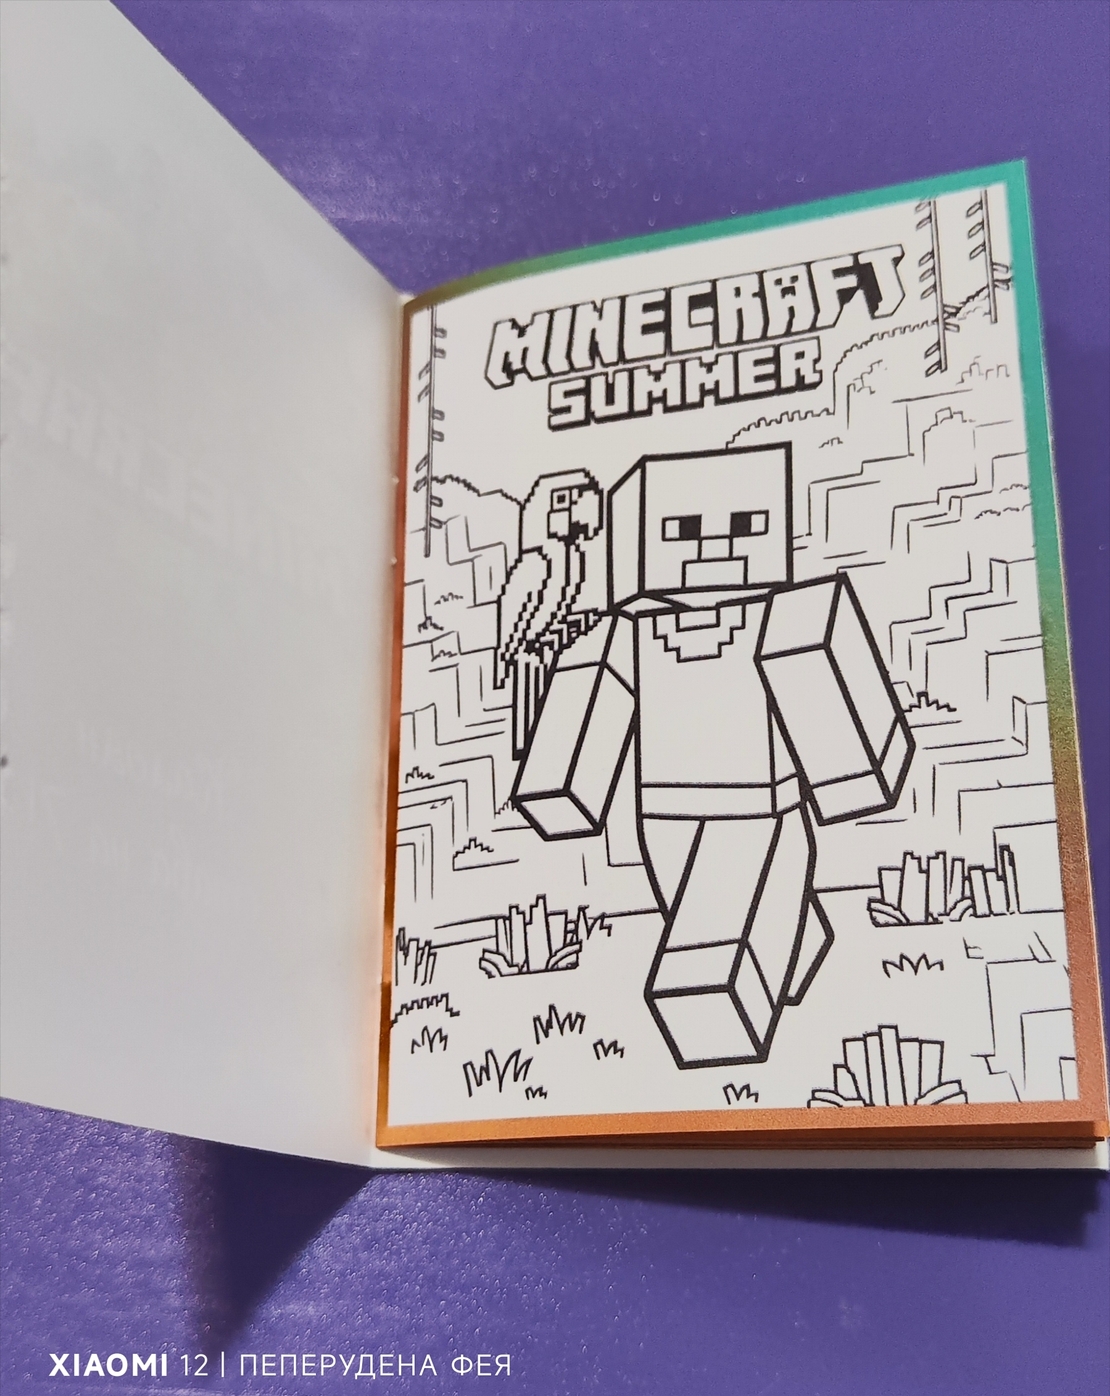 MINECRAFT
SUMMER
XIAOMI 12 | ПЕПЕРУДЕНА ФЕЯ